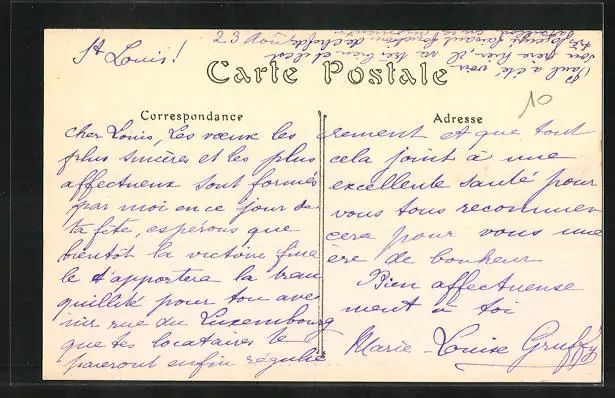 St Louis!
23 Août
Carte Postale
10
Correspondance
cher Louis, Les vœux les
plus sincères et les plus
affectueux sont formés
par moi en ce jour de
ta fête, espérons que
bientôt la victoire fina
le t'apportera la tran
quillité pour ton ave
nir rue du Luxembourg
que tes locataires te
paieront enfin réguliè
Adresse
rement et que tout
cela joint à une
excellente santé pour
vous tous recommen
cera pour vous une
ère de bonheur
Bien affectueuse
ment à toi
Marie-Louise Gruffy
Paul a été voir
son père hier, il va très bien et il est
très occupé